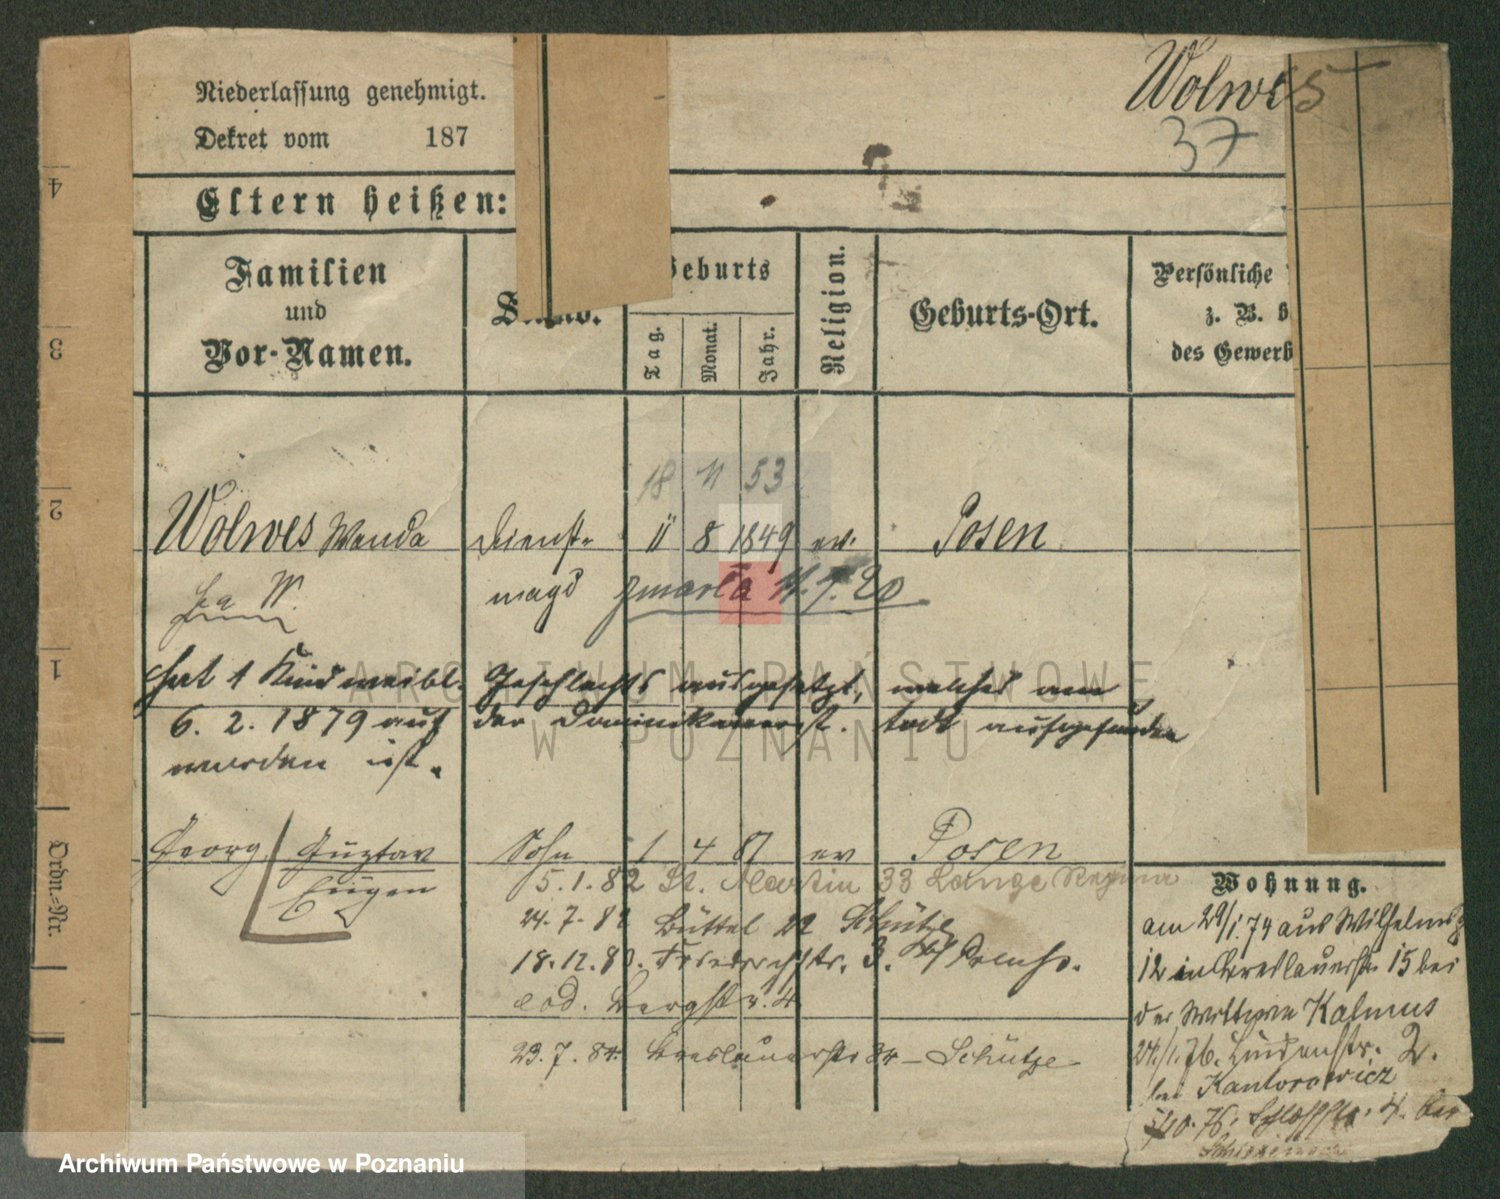 Wolwes
37
Niederlassung genehmigt.
Dekret vom 187
Eltern heißen:
Familien und Vor-Namen.
Geburts
Tag. Monat. Jahr.
Religion.
Geburts-Ort.
Persönliche
z. B. h
des Gewerb
18 11 53
Wolwes Wanda Dienst- 11 8 1849 ev. Posen
magd zmarła 11.7.20
hat 1 Kind weibl. Geschlechts ausgesetzt, welches am
6. 2. 1879 auf der Dominikanerst. todt aufgefunden
worden ist.
Georg Gustav Sohn 1 4 81 ev Posen
Eugen
5.1.82 St. Martin 33 Lange
24.7.82 Büttel 22 Schütze
18.12.80. Friedrichstr. 3.
eod. Bergstr. 4
23.7.84 Breslauerstr 34 – Schütze
Wohnung.
am 29/1.74 aus Wilhelms
12 in Breslauerstr 15 bei
der Wittwe Kalmus
24/1.76. Lindenstr. 2.
bei Kantorowicz
10.76. Schloßstr. 4. bei
4
3
2
1
Ordn.-Nr.
ARCHIWUM PAŃSTWOWE
W POZNANIU
Archiwum Państwowe w Poznaniu